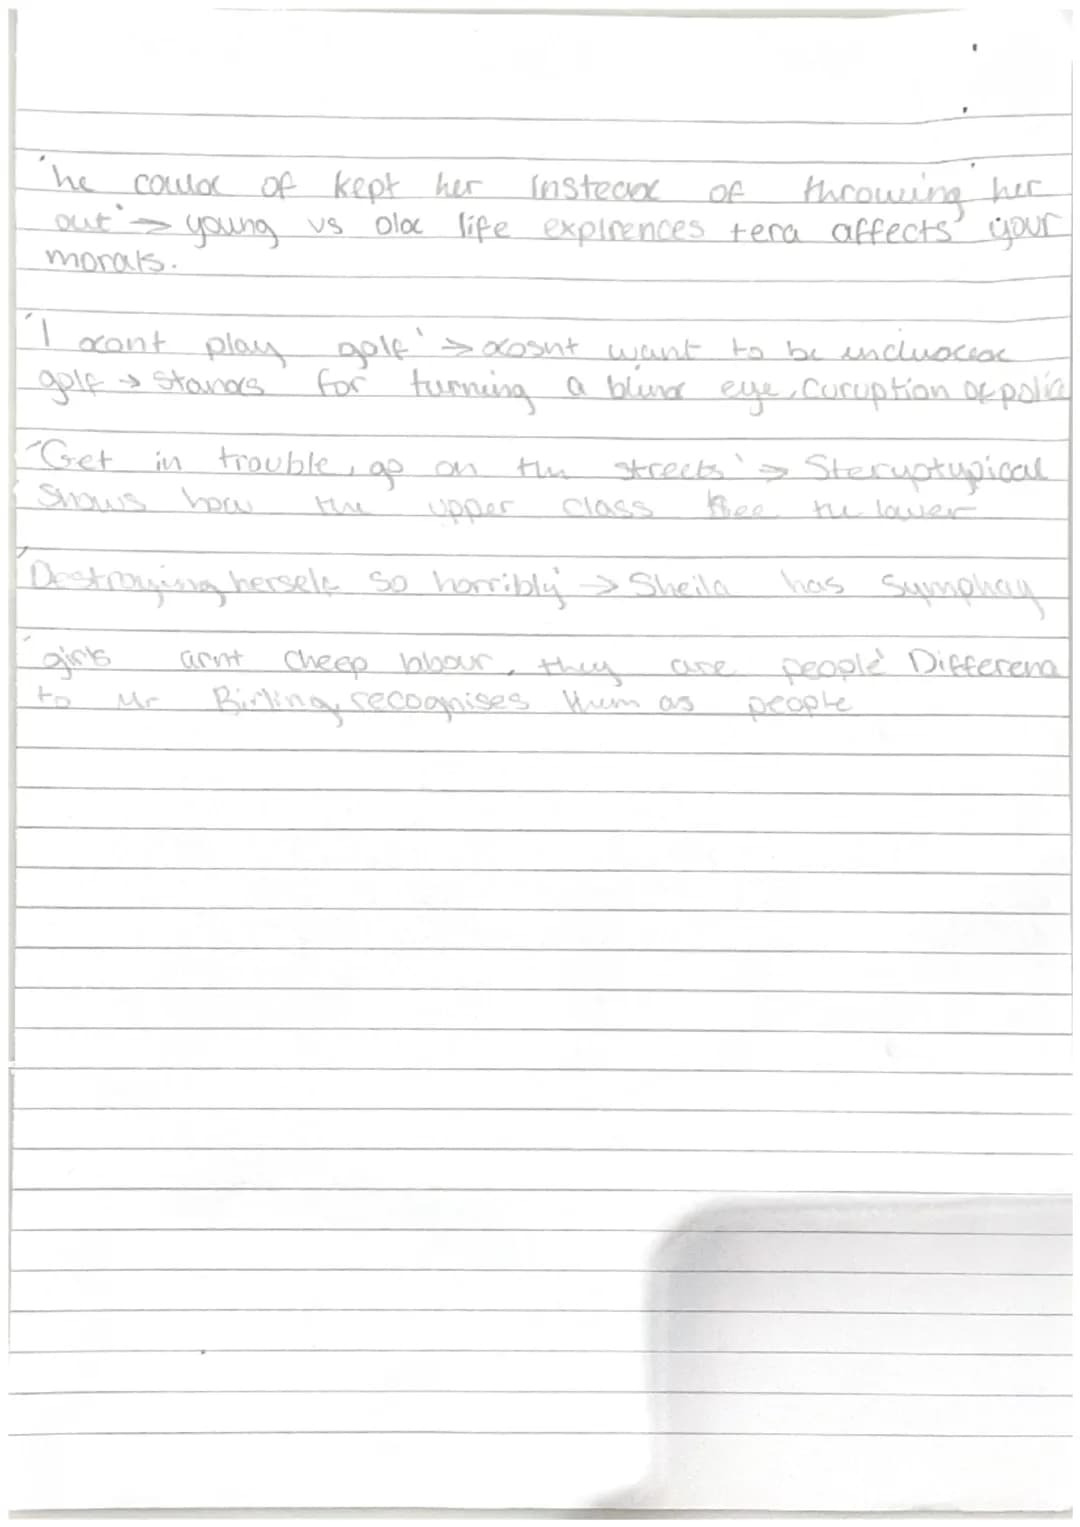 'he could of kept her instead of throwing her
out' → young vs old life expirences tera affects your
morals.
'I dont play golf' → dosnt want to be included
golf → stands for turning a blind eye, curuption of police
'Get in trouble, go on the streets' → Steryotypical
Shows how the upper class see the lower
'Destroying herself so horribly' → Sheila has Symphay
'girls arnt cheap labour, they are people' Differena
to Mr Birling, recognises them as people